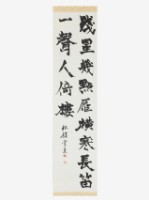 残星幾點雁橫塞長笛
一聲人倚樓